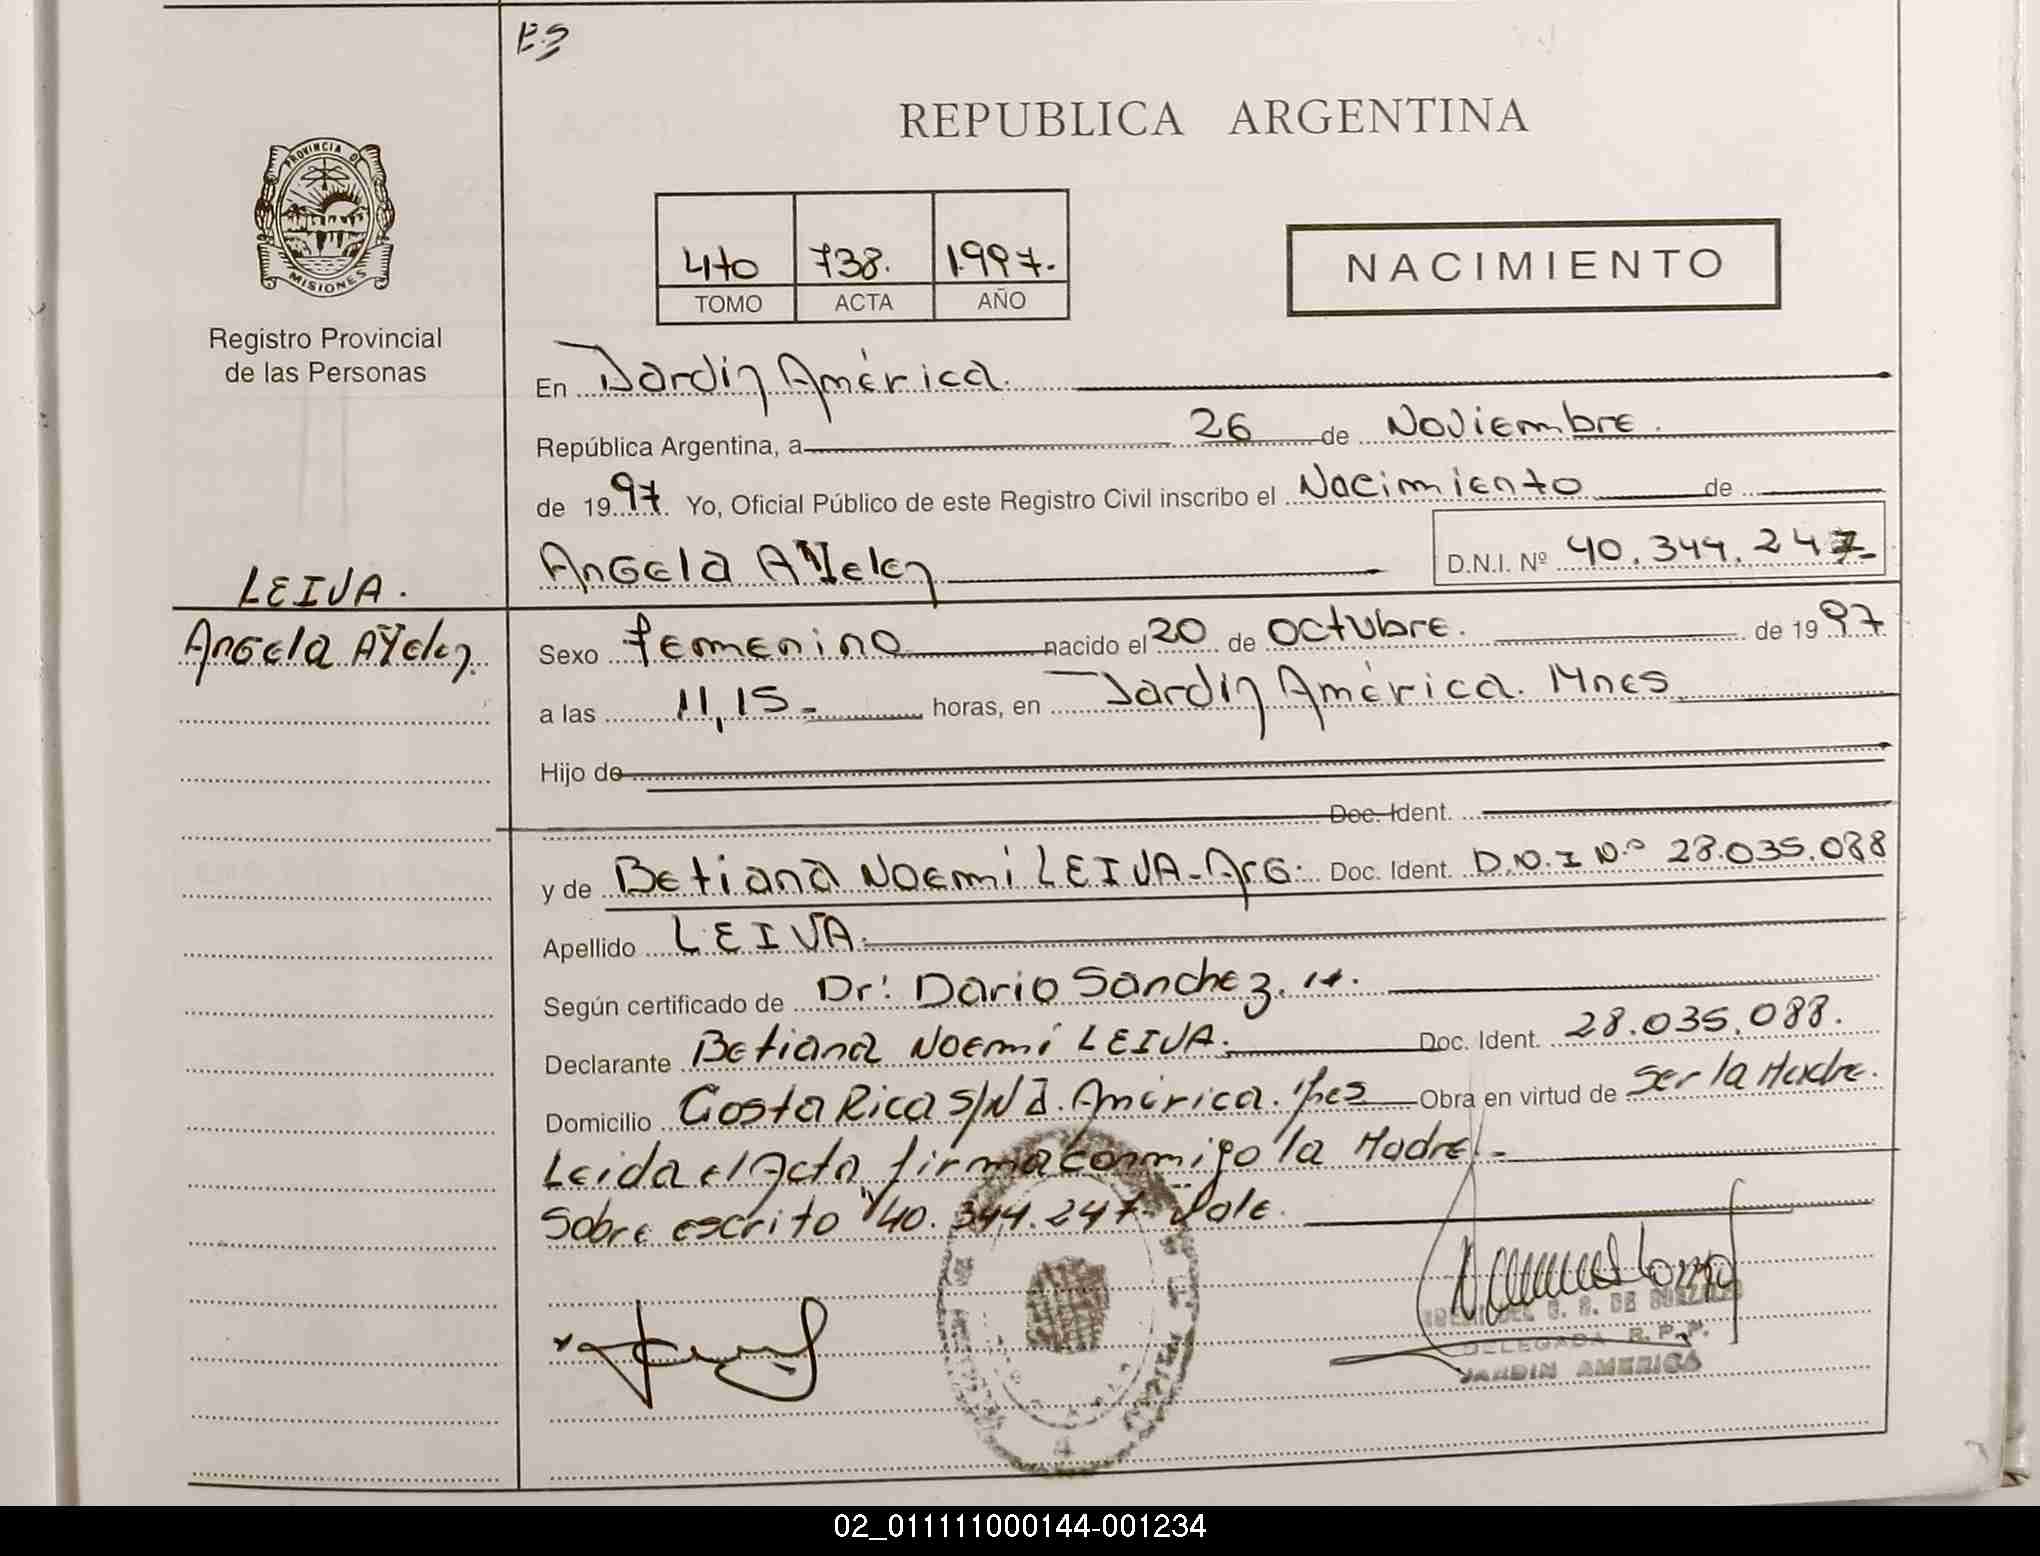 ES
REPUBLICA ARGENTINA
PROVINCIA DE
MISIONES
Registro Provincial
de las Personas
4to 738. 1997.
TOMO ACTA AÑO
NACIMIENTO
En Jardin América.
República Argentina, a 26 de Noviembre.
de 1997. Yo, Oficial Público de este Registro Civil inscribo el Nacimiento de
Angela AYelen D.N.I. Nº 40.344.247-
LEIVA.
Angela AYelen.
Sexo femenino nacido el 20 de Octubre. de 1997
a las 11,15- horas, en Jardin América. Mnes
Hijo de
Doc. Ident.
y de Betiana Noemi LEIVA-Arg. Doc. Ident. D.N.I N.º 28.035.088
Apellido LEIVA.
Según certificado de Dr: Dario Sanchez. H.
Declarante Betiana Noemí LEIVA. Doc. Ident. 28.035.088.
Domicilio Costa Rica S/N J. América. Mnes Obra en virtud de Ser la Madre.
Leida el Acta firma conmigo la Madre.-
Sobre escrito "40.344.247" Vale.
DELEGADA R. P. P.
JARDIN AMERICA
02_011111000144-001234